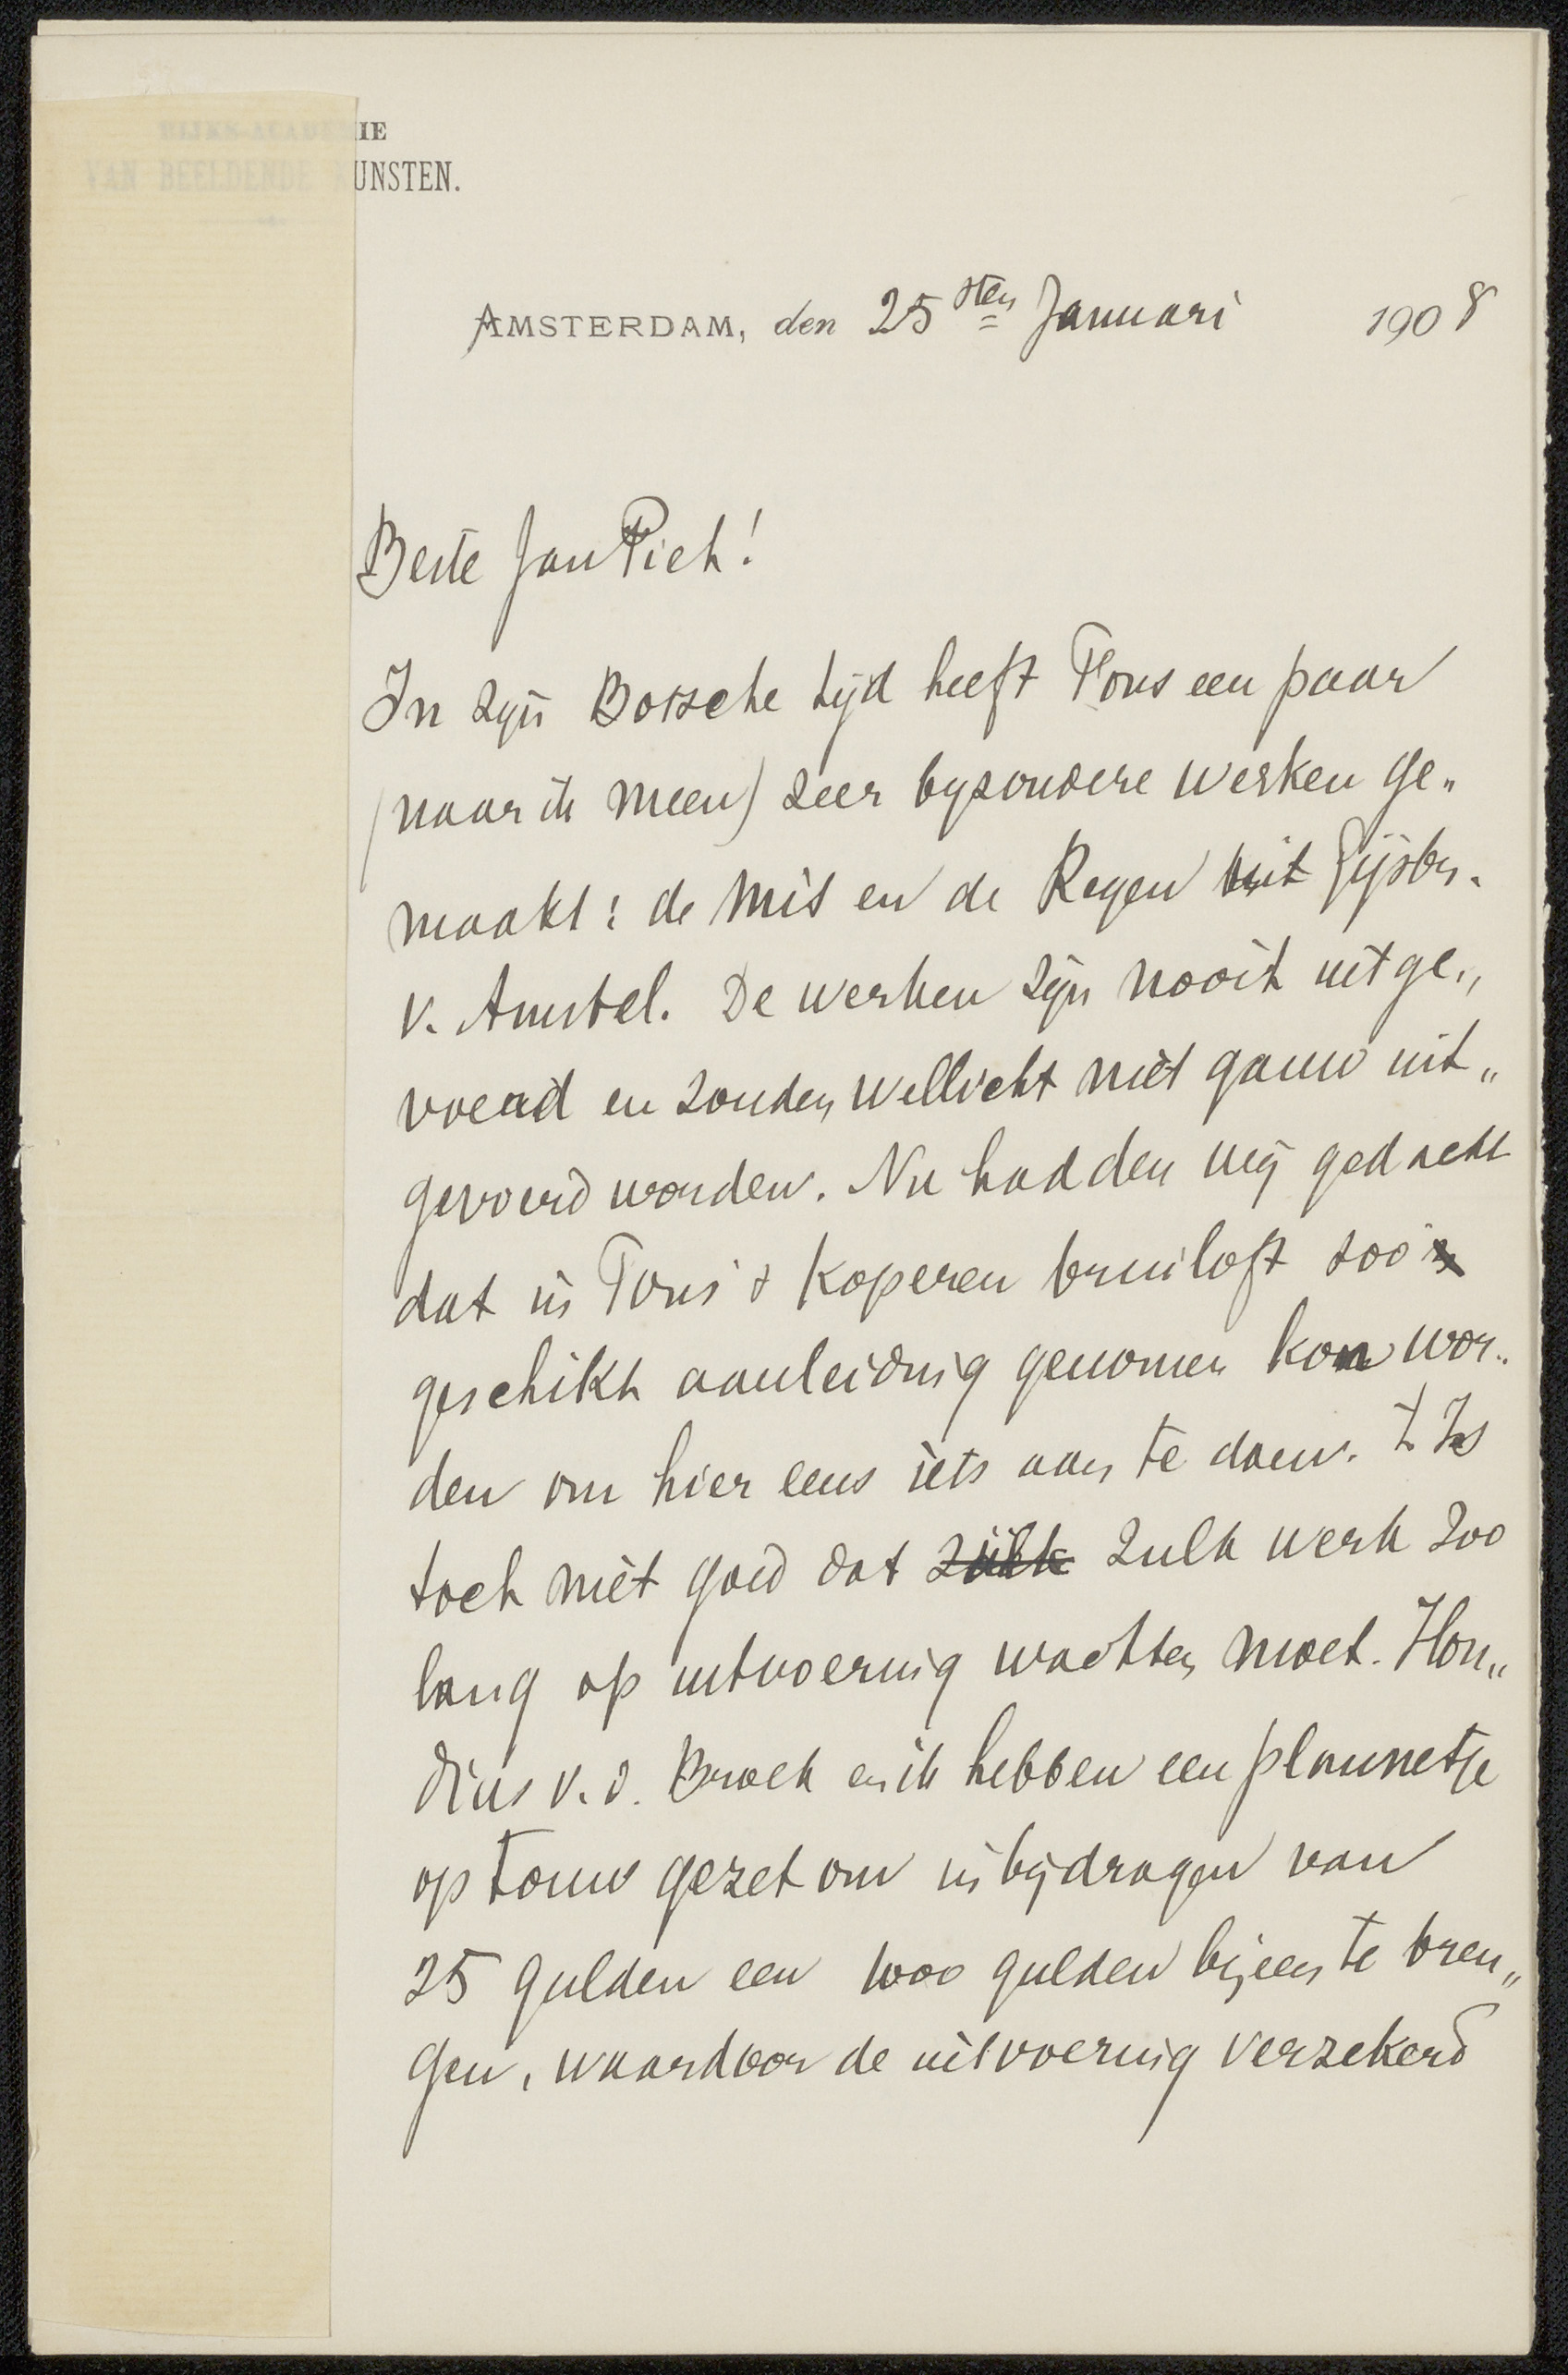 RIJKS-ACADEMIE
VAN BEELDENDE KUNSTEN.
AMSTERDAM, den 25sten Januari 1908
Beste Jan Piet!
In zijn Bossche tijd heeft Fons een paar
(naar ik meen) zeer byzondere werken ge„
maakt: de Mis en de Reyen uit Gijsbr.
v. Amstel. De werken zijn nooit uitge„
voerd en zouden wellicht niet gauw uit„
gevoerd worden. Nu hadden wij gedacht
dat in Fons's koperen bruiloft zoo'n
geschikte aanleiding genomen kon wor„
den om hier eens iets aan te doen. 't Is
toch niet goed dat zulk zulk werk zoo
lang op uitvoering wachten moet. Hon„
dius v. d. Broek en ik hebben een plannetje
op touw gezet om in bijdragen van
25 gulden een 1000 gulden bijeen te bren„
gen, waardoor de uitvoering verzekerd